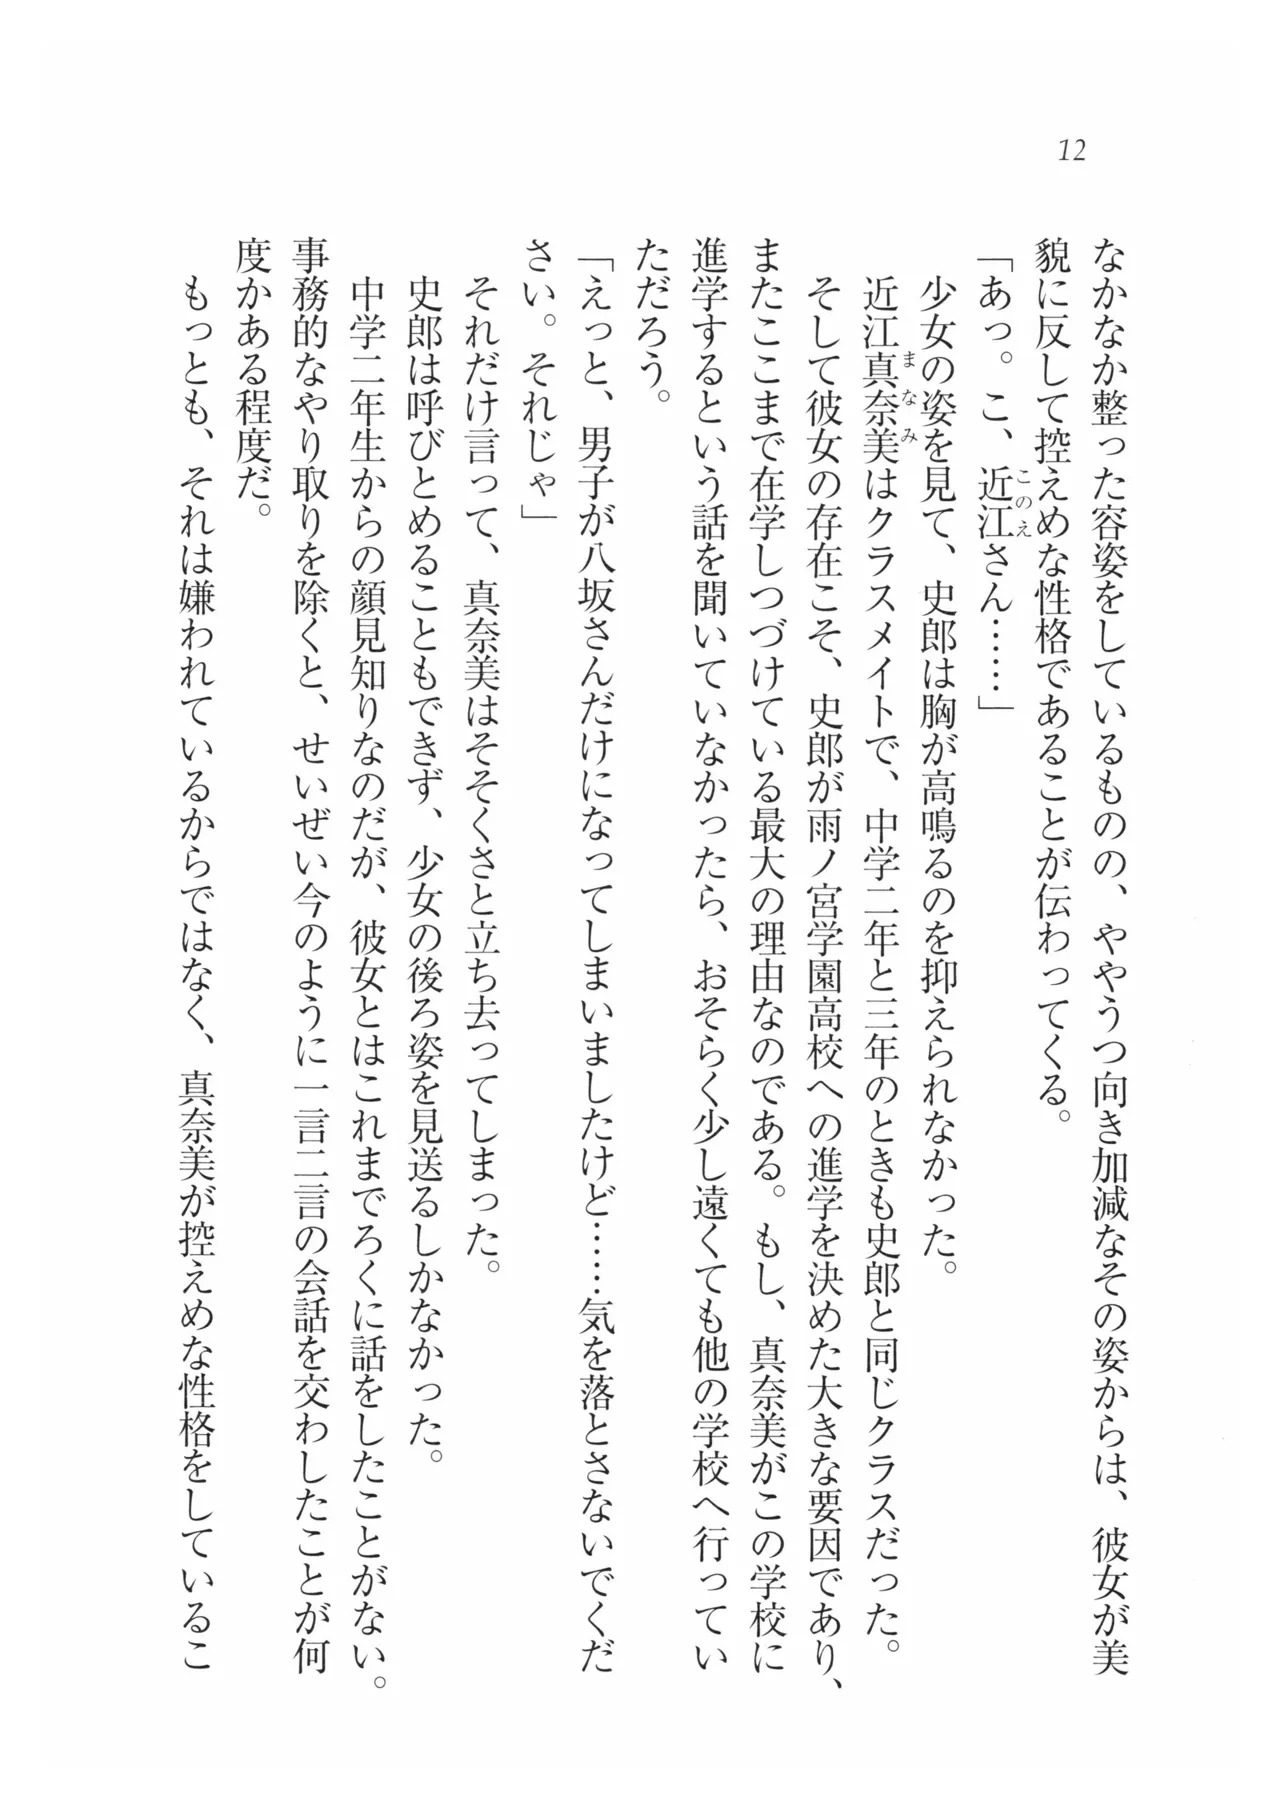 12
なかなか整った容姿をしているものの、ややうつ向き加減なその姿からは、彼女が美
貌に反して控えめな性格であることが伝わってくる。
「あっ。こ、近江さん……」
このえ
少女の姿を見て、史郎は胸が高鳴るのを抑えられなかった。
近江真奈美はクラスメイトで、中学二年と三年のときも史郎と同じクラスだった。
まなみ
そして彼女の存在こそ、史郎が雨ノ宮学園高校への進学を決めた大きな要因であり、
またここまで在学しつづけている最大の理由なのである。もし、真奈美がこの学校に
進学するという話を聞いていなかったら、おそらく少し遠くても他の学校へ行ってい
ただろう。
「えっと、男子が八坂さんだけになってしまいましたけど……気を落とさないでくだ
さい。それじゃ」
それだけ言って、真奈美はそそくさと立ち去ってしまった。
史郎は呼びとめることもできず、少女の後ろ姿を見送るしかなかった。
中学二年生からの顔見知りなのだが、彼女とはこれまでろくに話をしたことがない。
事務的なやり取りを除くと、せいぜい今のように一言二言の会話を交わしたことが何
度かある程度だ。
もっとも、それは嫌われているからではなく、真奈美が控えめな性格をしているこ